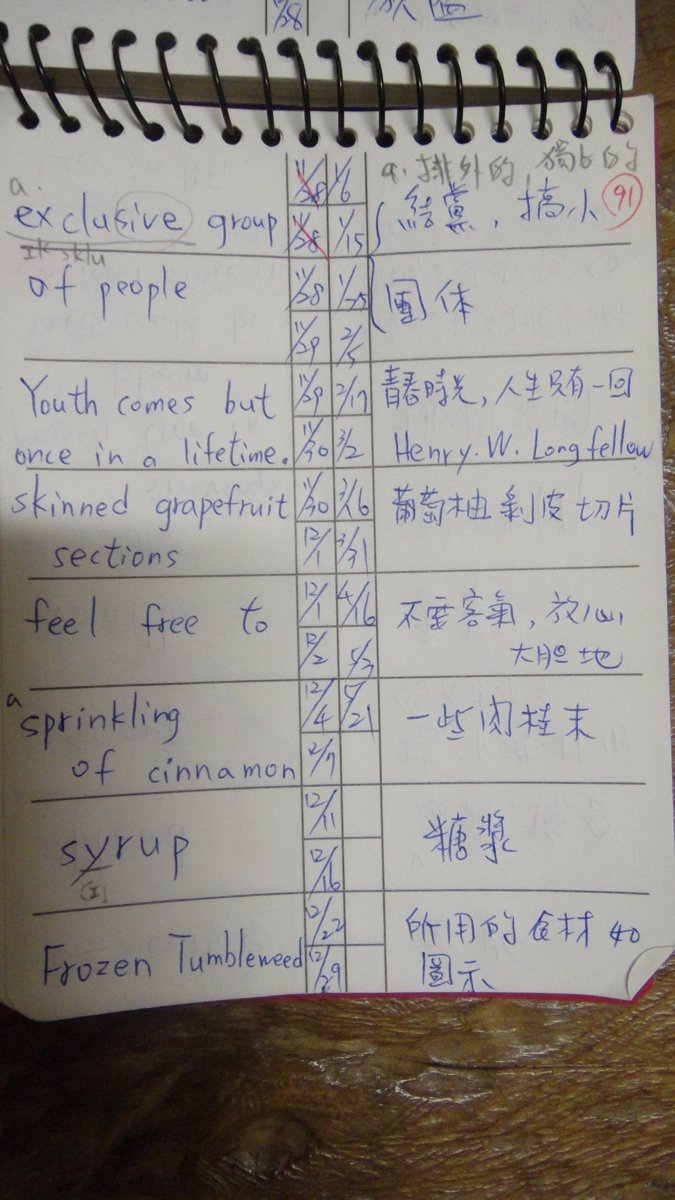 28 放鹽
a.
a. 排外的, 獨占的
exclusive group 11/28 1/6 結黨, 搞小 91
ɪk sklu 11/28 1/15
of people 11/28 1/25 團体
11/29 2/5
Youth comes but 11/29 2/17 青春時光, 人生只有一回
once in a lifetime. 11/30 3/2 Henry. W. Longfellow
skinned grapefruit 11/30 3/16 葡萄柚剝皮切片
sections 12/1 3/31
feel free to 12/1 4/16 不要客氣, 放心
12/2 5/3 大胆地
a sprinkling 12/4 5/21 一些肉桂末
of cinnamon 12/7
syrup 12/11 糖漿
[ɪ] 12/16
Frozen Tumbleweed 12/22 所用的食材如
12/29 圖示